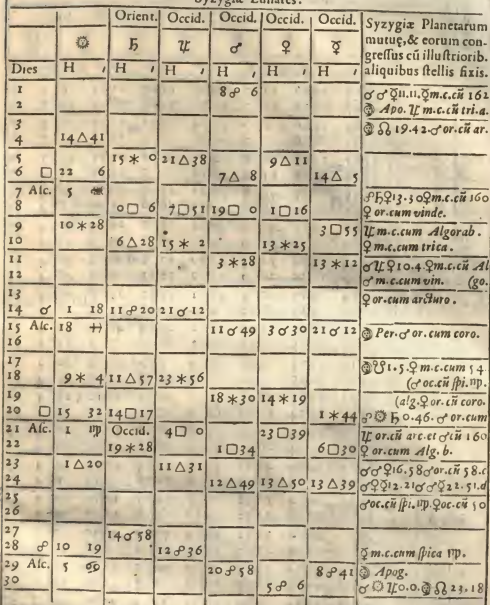 Syzygiæ Lunares.
Orient. Occid. Occid. Occid. Occid. Syzygiæ Planetarum
☼ ♄ ♃ ♂ ♀ ☿ mutuę, & eorum con-
gressus cū illustriorib.
Dies H ′ H ′ H ′ H ′ H ′ H ′ aliquibus stellis fixis.
1 8☍ 6 ☌♂☿11.11.☿m.c.cū 162
2 Apo. ♃ m.c.cū tri.a.
3 ☊ 19.42.♂ or.cū ar.
4 14△41
5 15✶ 0 21△38 9△11
6 □ 22 6 7△ 8 14△ 5
7 Asc. 5 ♒ ☍♄♀13.30♀m.c.cū 160
8 0□ 6 7□51 19□ 0 1□16 ♀ or.cum vinde.
9 10✶28 3□55 ♃ m.c.cum Algorab.
10 6△28 15✶ 2 13✶25 ♀ m.c.cum trica.
11 3✶28 13✶12 ☌♃♀10.4.♀m.c.cū Al
12 ♂ m.c.cum vin. (go.
13 ♀ or.cum arcturo.
14 ☌ 1 18 11☍20 21☌12
15 Asc. 18 ♓ 11☌49 3☌30 21☌12 Per.♂ or.cum coro.
16
17 ☋1.5.♀ m.c.cum 54
18 9✶ 4 11△57 23✶56 (♂ oc.cū spi.♍.
19 18✶30 14✶19 (alg.♀ or.cū coro.
20 □ 15 32 14□17 1✶44 ☍☼♄0.46.♂ or.cum
21 Asc. 1 ♍ Occid. 4□ 0 23□39 ♃ or.cū arc.et ♂ cū 160
22 19✶28 1□34 6□30 ♀ or.cum Alg.b.
23 1△20 11△31 ☌♂♀16.58♂or.cū 58.c
24 12△49 13△50 13△39 ☌♀☿12.21☌♂☿22.51.d
25 ♂oc.cū spi.♍.♀oc.cū 50
26
27 14☌58
28 ☍ 10 19 12☍36 ☿ m.c.cum spica ♍.
29 Asc. 5 ♋ 20☍58 8☍41 Apog.
30 5☍ 6 ☌☼♃0.0. ☊ 23.18